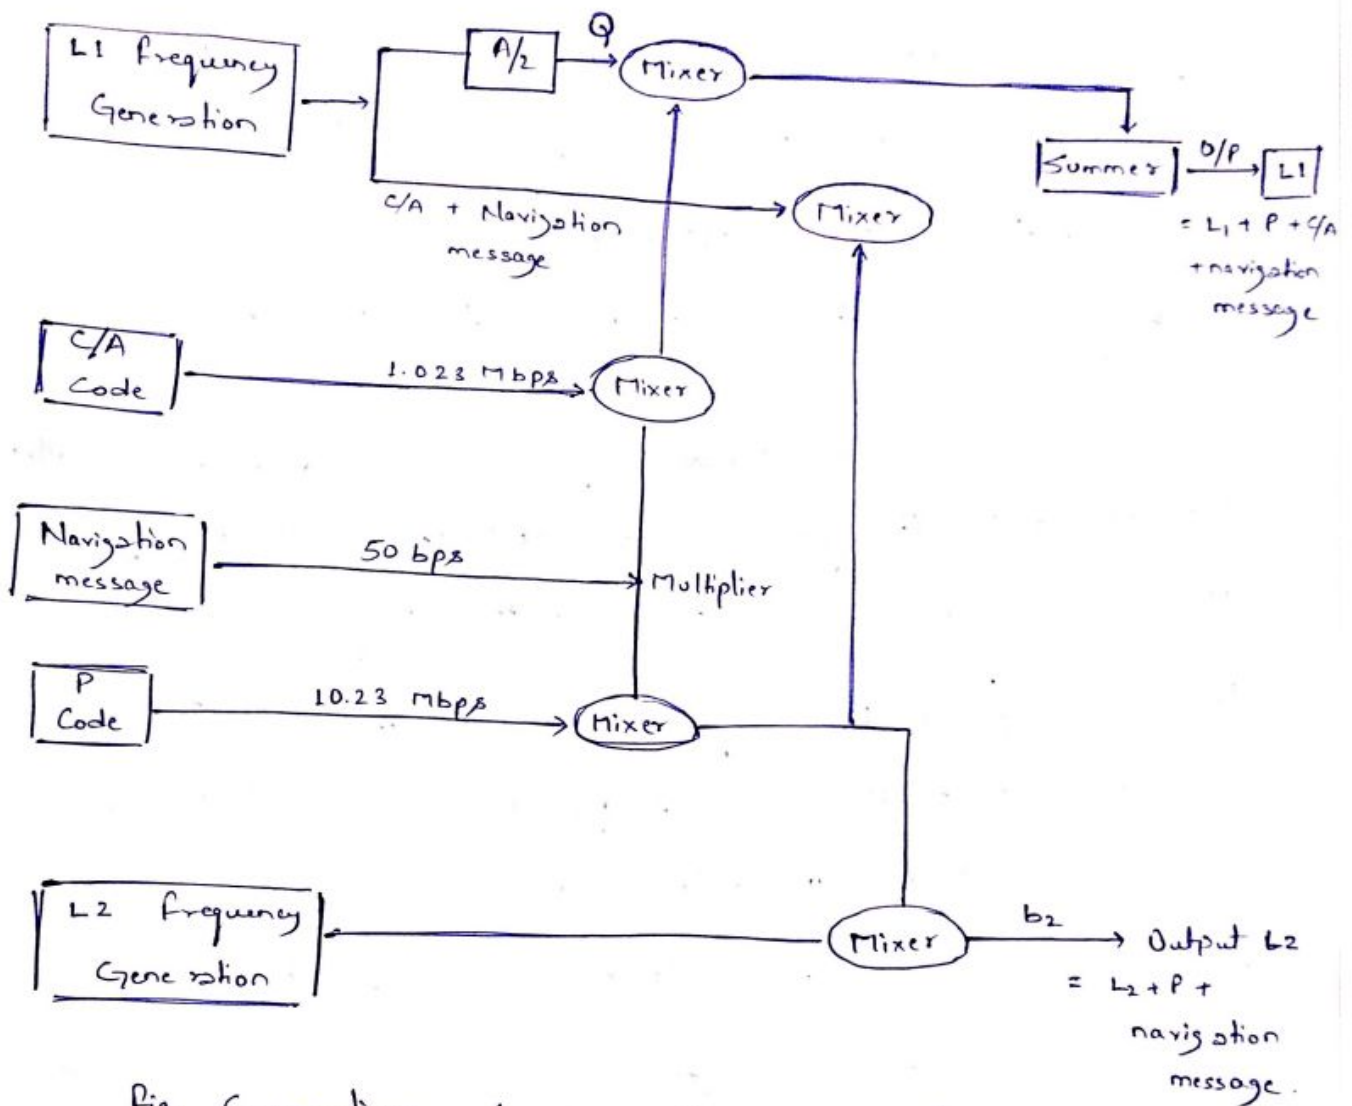 L1 frequency
Generation
A/2
Q
Mixer
Summer
O/P
L1
= L1 + P + C/A
+ navigation
message
C/A + Navigation
message
Mixer
C/A
Code
1.023 Mbps
Mixer
Navigation
message
50 bps
Multiplier
P
Code
10.23 Mbps
Mixer
L2 frequency
Generation
Mixer
b2
Output L2
= L2 + P +
navigation
message.